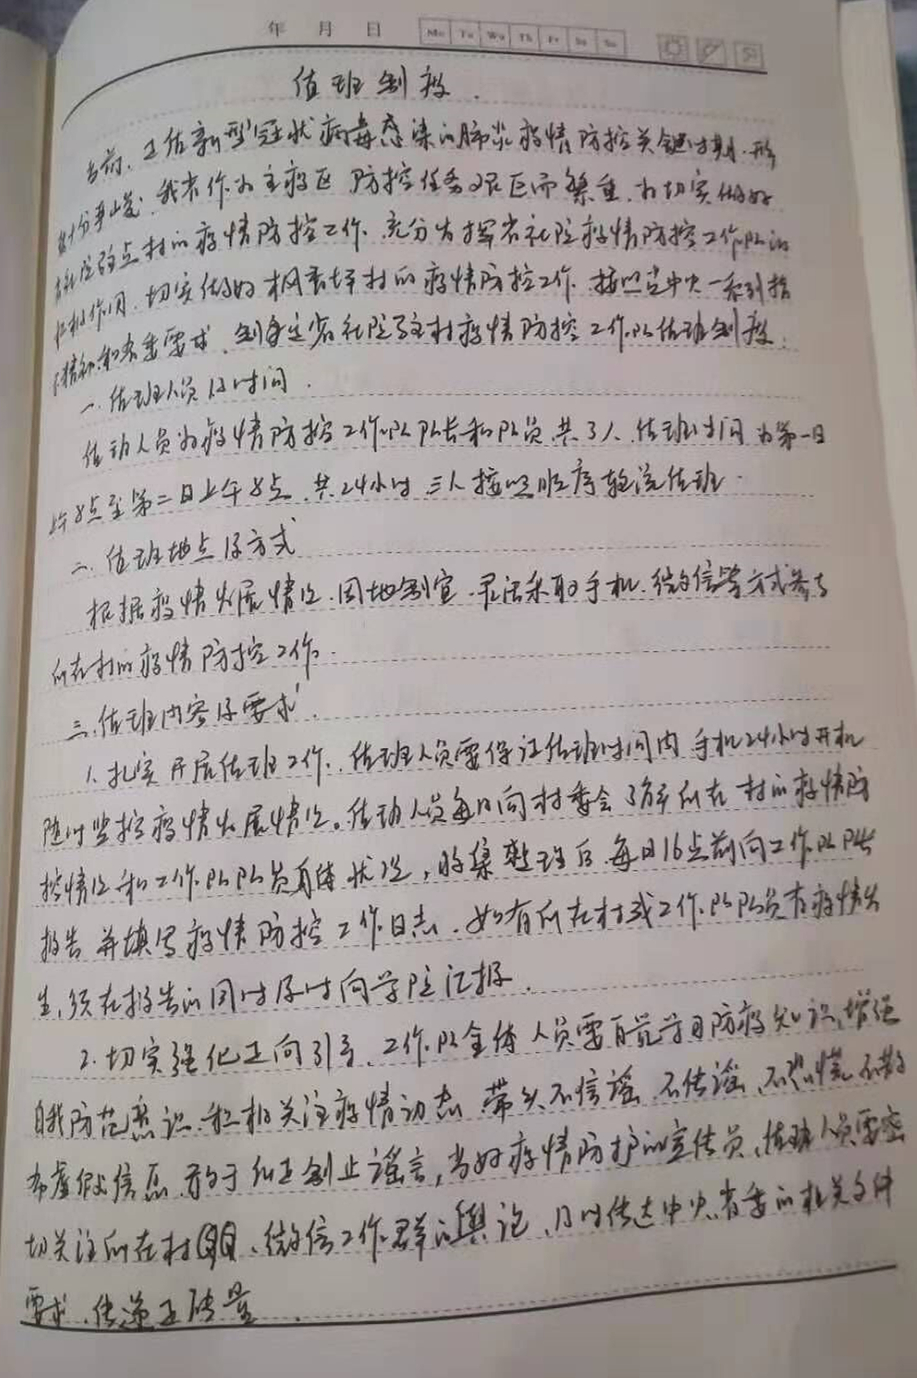 年 月 日 Mo Tu We Th Fr Sa Su
值班制度.
当前,正值新型冠状病毒感染的肺炎疫情防控关键时期.形
势十分严峻,我省作为主疫区 防控任务艰巨而繁重.为切实做好
村的疫情防控工作.充分发挥省社院疫情防控工作队的
积极作用.切实做好枫香坪村的疫情防控工作.按照党中央一系列指
示精神和省委要求,制定省社院驻村疫情防控工作队值班制度:
一.值班人员及时间.
值班人员为疫情防控工作队队长和队员,共3人.值班时间为第一日
上午8点至第二日上午8点,共24小时 三人按照顺序轮流值班.
二.值班地点及方式
根据疫情发展情况.因地制宜.灵活采取手机.微信等方式参与
所在村的疫情防控工作.
三.值班内容及要求.
1.扎实开展值班工作.值班人员要保证值班时间内手机24小时开机
随时监控疫情发展情况。值班人员每日向村委会了解所在村的疫情防
控情况和工作队队员身体状况,收集整理后每日16点前向工作队队长
报告并填写疫情防控工作日志.如有所在村或工作队队员有疫情发
生,须在报告的同时及时向学院汇报.
2.切实强化正向引导.工作队全体人员要自觉学习防疫知识,增强
自我防范意识.积极关注疫情动态.带头不信谣.不传谣.不恐慌.不散
布虚假信息.敢于纠正制止谣言,当好疫情防护的宣传员.值班人员要密
切关注所在村QQ、微信工作群的舆论.及时传达中央.省委的相关文件
要求.传递正能量.